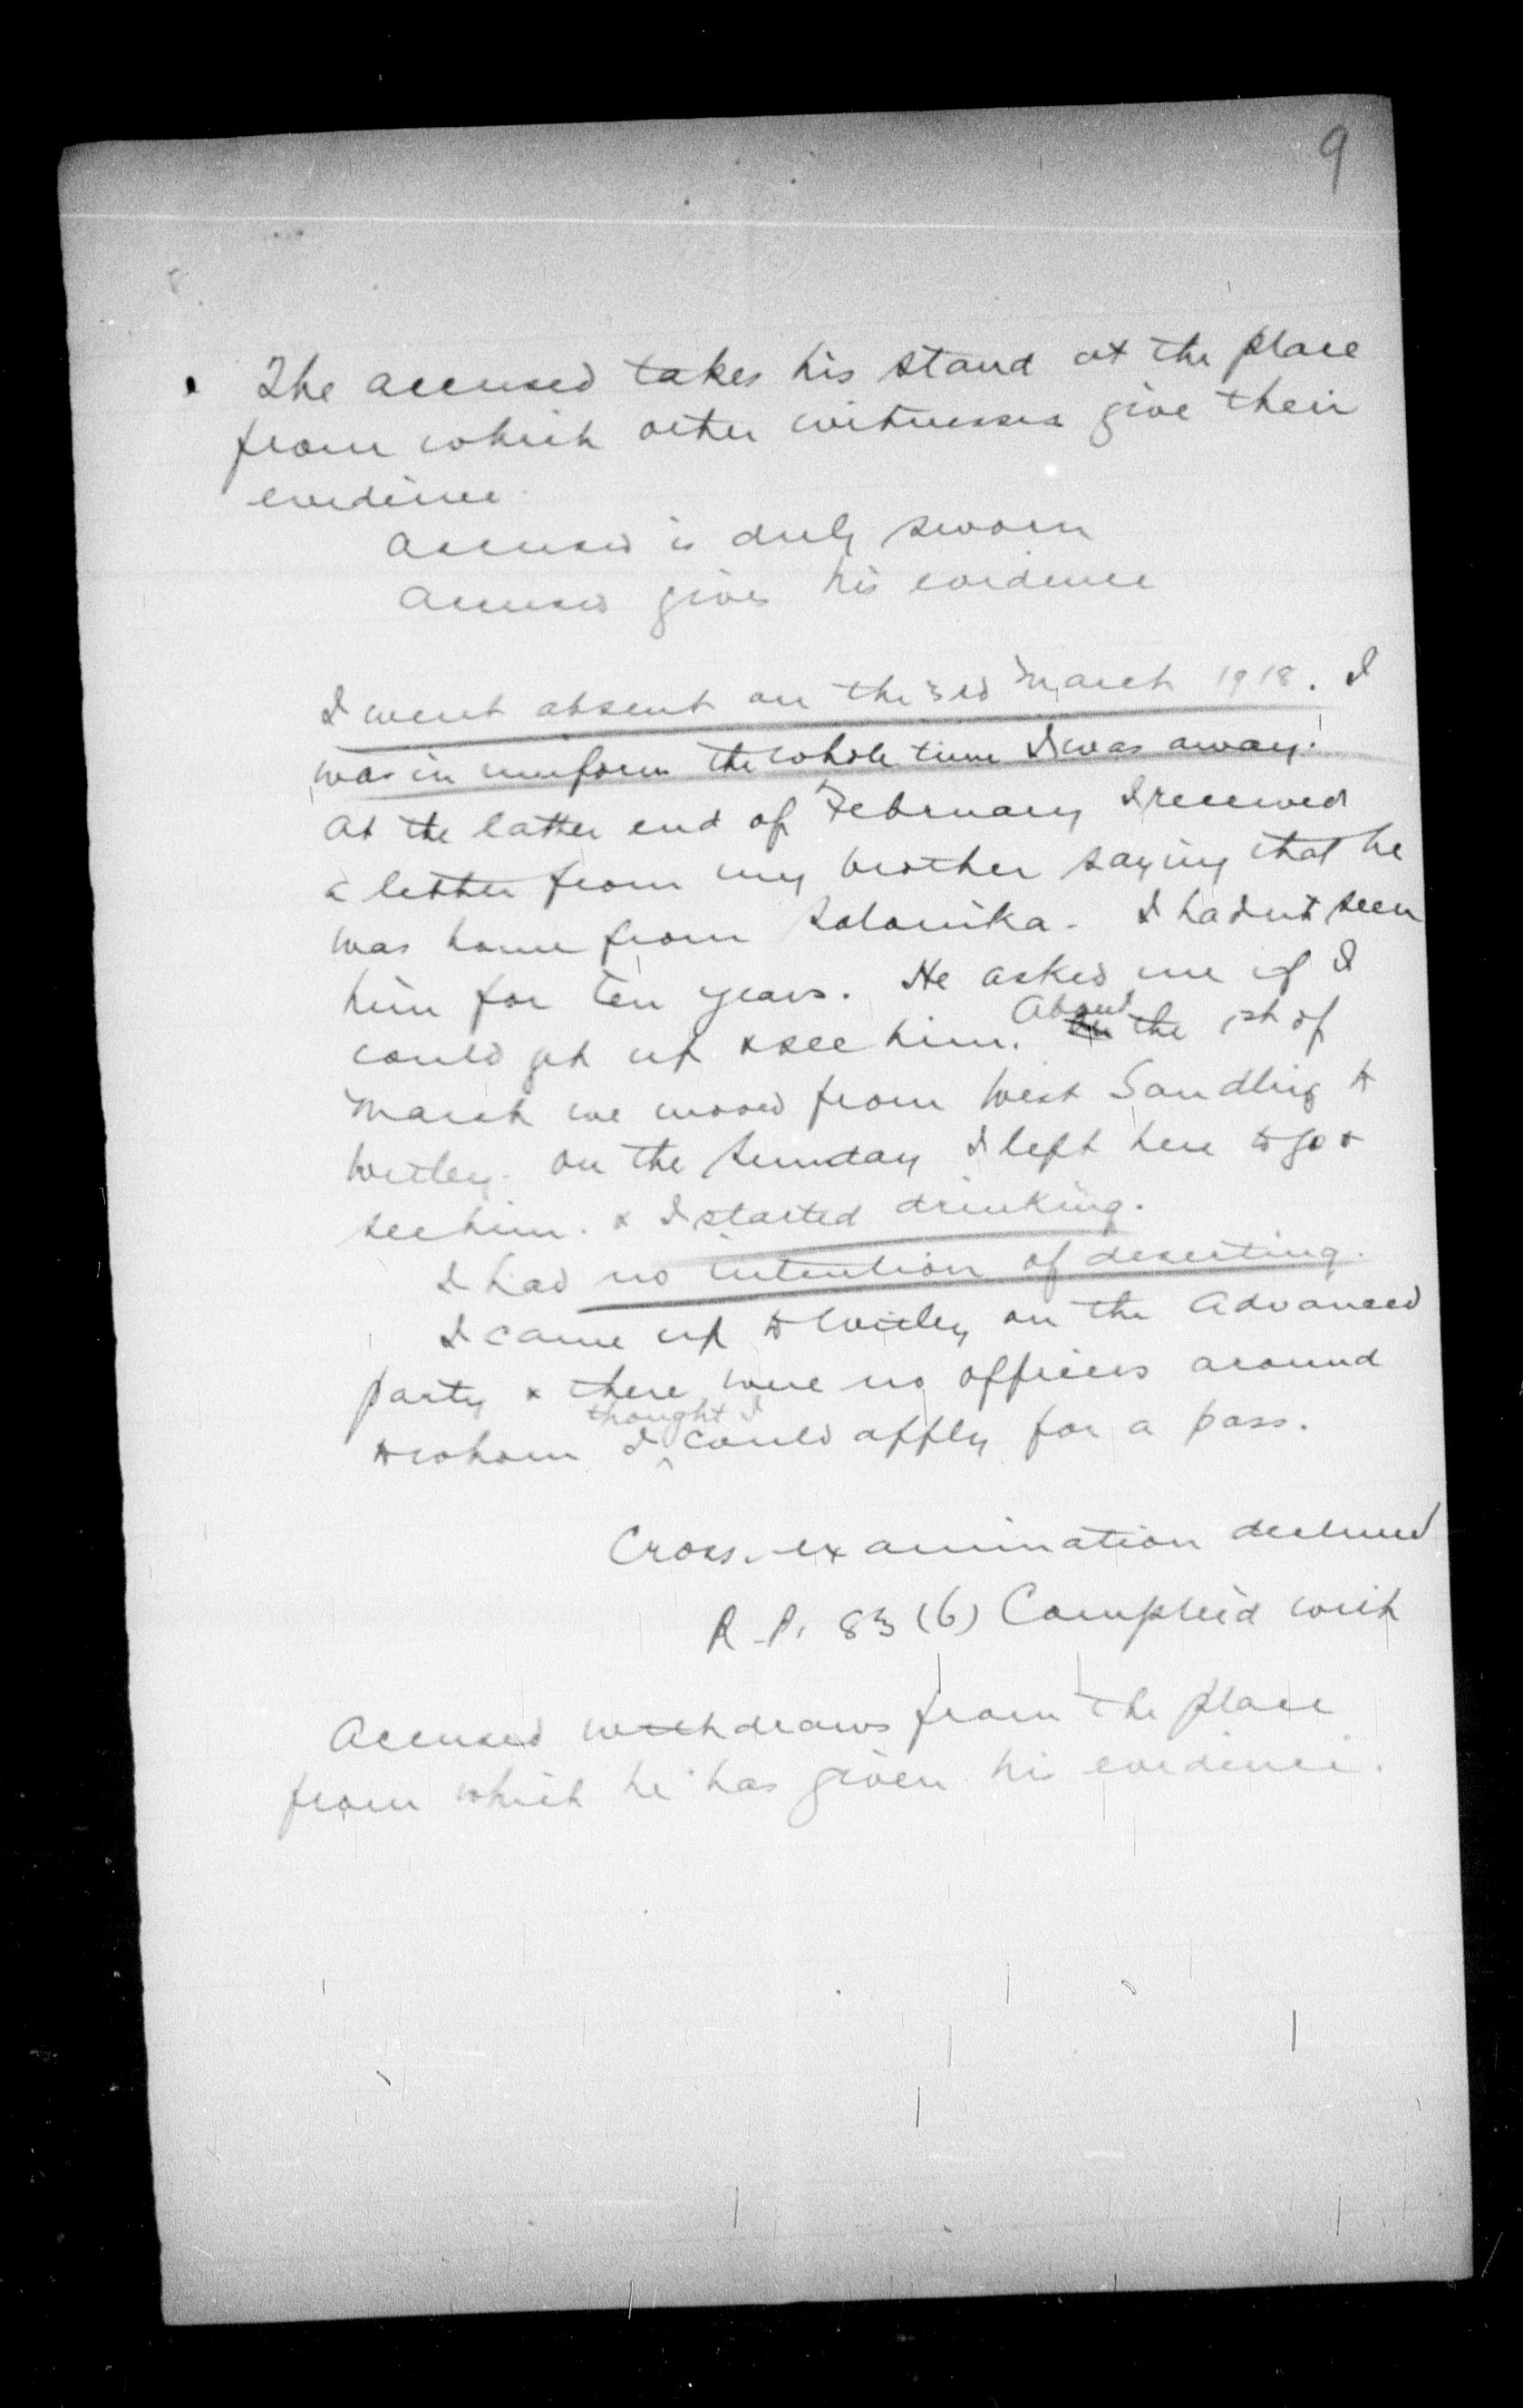 9
The accused takes his stand at the place
from which other witnesses give their
evidence.
Accused is duly sworn
Accused gives his evidence
I went absent on the 3rd March 1918. I
was in uniform the whole time I was away.
At the latter end of February I received
a letter from my brother saying that he
was home from Salonika. I hadn't seen
him for ten years. He asked me if I
could get up & see him. About the 1st of
March we moved from West Sandling to
Witley. On the Sunday I left here to go &
see him. & I started drinking.
I had no intention of deserting.
I came up to Witley on the Advanced
party & there were no officers around
to whom I thought I could apply for a pass.
Cross-examination declined
R.P. 83 (6) Complied with
Accused withdraws from the place
from which he has given his evidence.